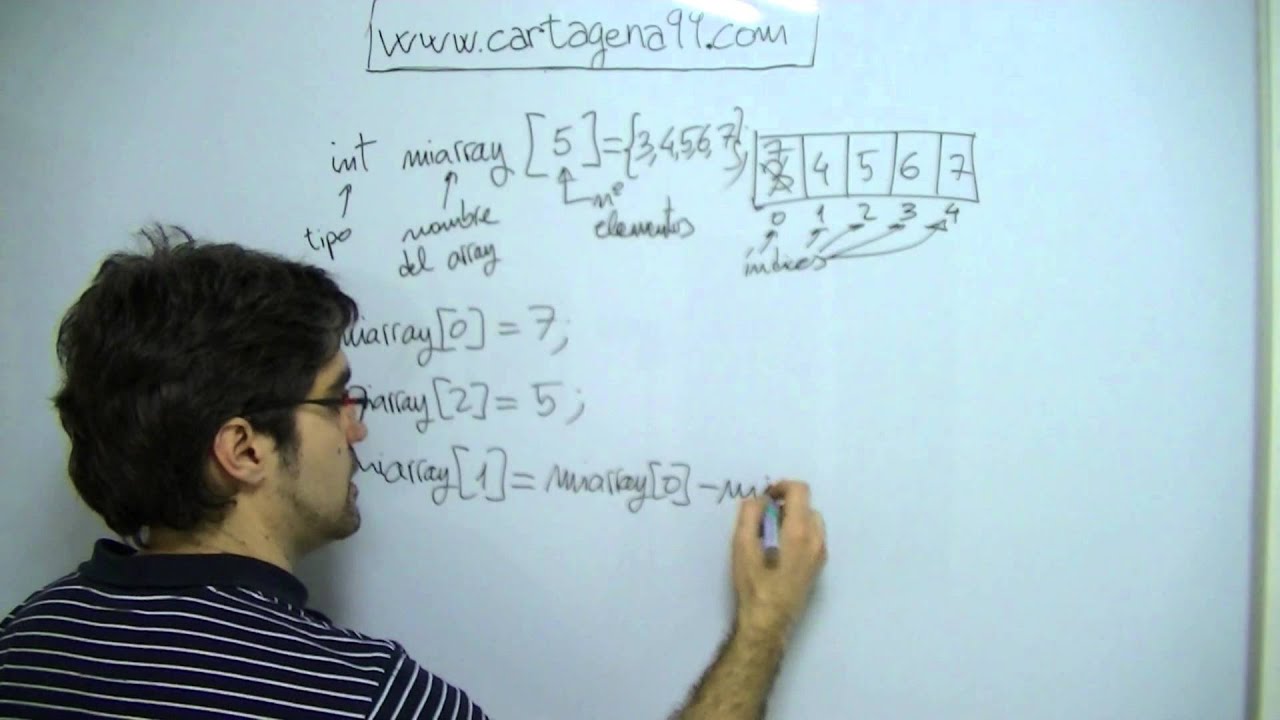 www.cartagena99.com
int miarray [5]={3,4,5,6,7};
7 4 5 6 7
0 1 2 3 4
tipo
nombre del array
nº elementos
índices
miarray[0] = 7;
miarray[2] = 5;
miarray[1] = miarray[0] - mi